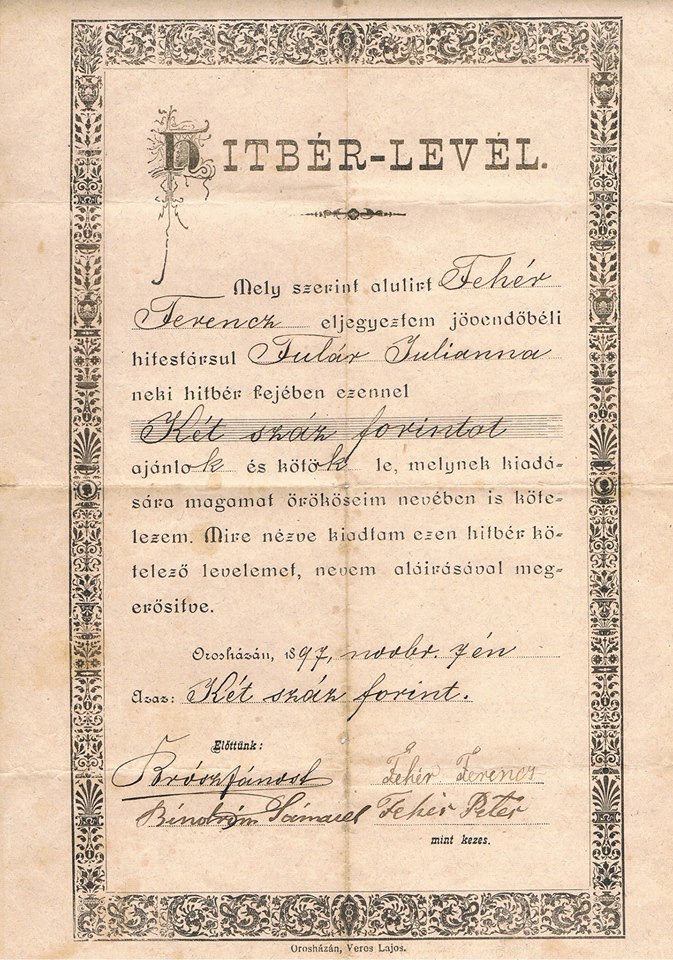 HITBÉR-LEVÉL.
Mely szerint alulirt Fehér
Ferencz eljegyeztem jövendőbéli
hitestársul Fulár Julianna
neki hitbér fejében ezennel
Két száz forintot
ajánlok és kötök le, melynek kiadá-
sára magamat örököseim nevében is köte-
lezem. Mire nézve kiadtam ezen hitbér kö-
telező levelemet, nevem aláirásával meg-
erősitve.
Orosházán, 1897, novbr. 7én
Azaz: Két száz forint.
Előttünk:
Fehér Ferencz
Sámuel Fehér Péter
mint kezes.
Orosházán, Veres Lajos.